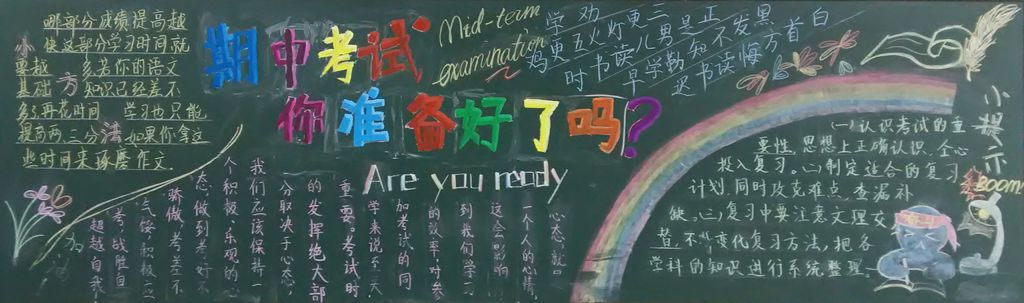 哪部分成绩提高越
快这部分学习时间就
要越 多若你的语文
基础 知识已经差不
多了再花时间 学习也只能
提高两三分 如果你拿这
些时间来琢磨作文
小
方
法
期中考试
Mid-term
examination
你准备好了吗?
Are you ready
学劝
三更灯火五更鸡
正是男儿读书时
黑发不知勤学早
白首方悔读书迟
心态,就口
一个人的心情,
这会影响
到我们学习
的效率,对参
加考试的同
学来说至关
重要。考试时
的发挥绝大部
分取决于心态,
我们应该保持一
个积极、乐观的
态,做到考好不
骄傲,考差不
气馁,积极应
考,战胜自
超越自我
为
小提示
(一)认识考试的重
要性,思想上正确认识,全心
投入复习。(二)制定适合的复习
计划,同时攻克难点,查漏补
缺。(三)复习中要注意文理交
替,不断变化复习方法,把各
学科的知识进行系统整理。
BOOM